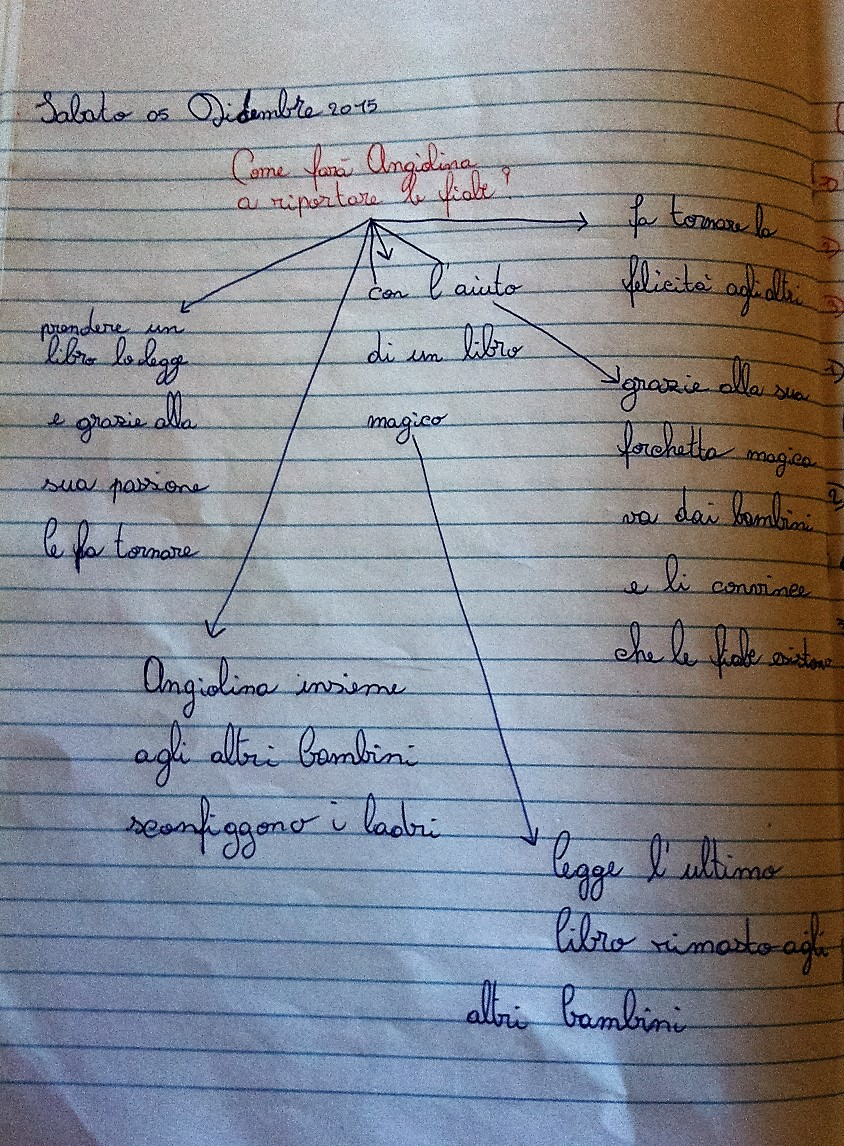 Sabato 05 Dicembre 2015
Come farà Angiolina
a riportare le fiabe?
prendere un
libro lo legge
e grazie alla
sua passione
le fa tornare
con l'aiuto
di un libro
magico
fa tornare la
felicità agli altri
grazie alla sua
forchetta magica
va dai bambini
e li convince
che le fiabe esistono
Angiolina insieme
agli altri bambini
sconfiggono i ladri
legge l'ultimo
libro rimasto agli
altri bambini